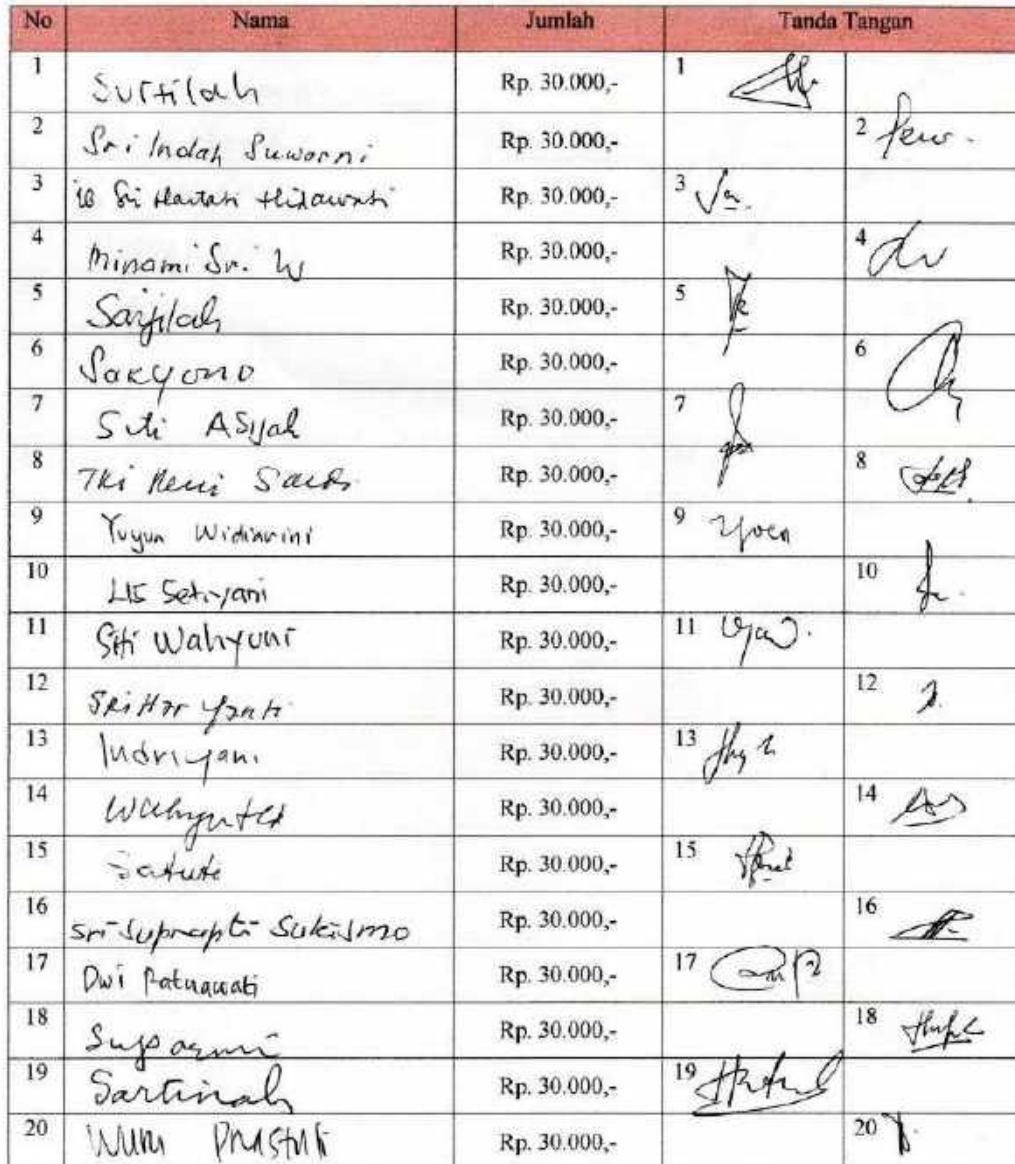 No Nama Jumlah Tanda Tangan
1 Surtilah Rp. 30.000,- 1
2 Sri Indah Suwarni Rp. 30.000,- 2
3 Sri Hartati Hidawati Rp. 30.000,- 3
4 Minarni Sri. W Rp. 30.000,- 4
5 Sarjilah Rp. 30.000,- 5
6 Saryono Rp. 30.000,- 6
7 Siti ASiyah Rp. 30.000,- 7
8 Tri Heni Rp. 30.000,- 8
9 Yuyun Widiarini Rp. 30.000,- 9
10 Lis Setiyani Rp. 30.000,- 10
11 Siti Wahyuni Rp. 30.000,- 11
12 Sri Haryanti Rp. 30.000,- 12
13 Indriyani Rp. 30.000,- 13
14 Rp. 30.000,- 14
15 Rp. 30.000,- 15
16 Sri Suprapti Sukismo Rp. 30.000,- 16
17 Dwi Ratnawati Rp. 30.000,- 17
18 Suparmi Rp. 30.000,- 18
19 Sartinah Rp. 30.000,- 19
20 Wuri Prastuti Rp. 30.000,- 20